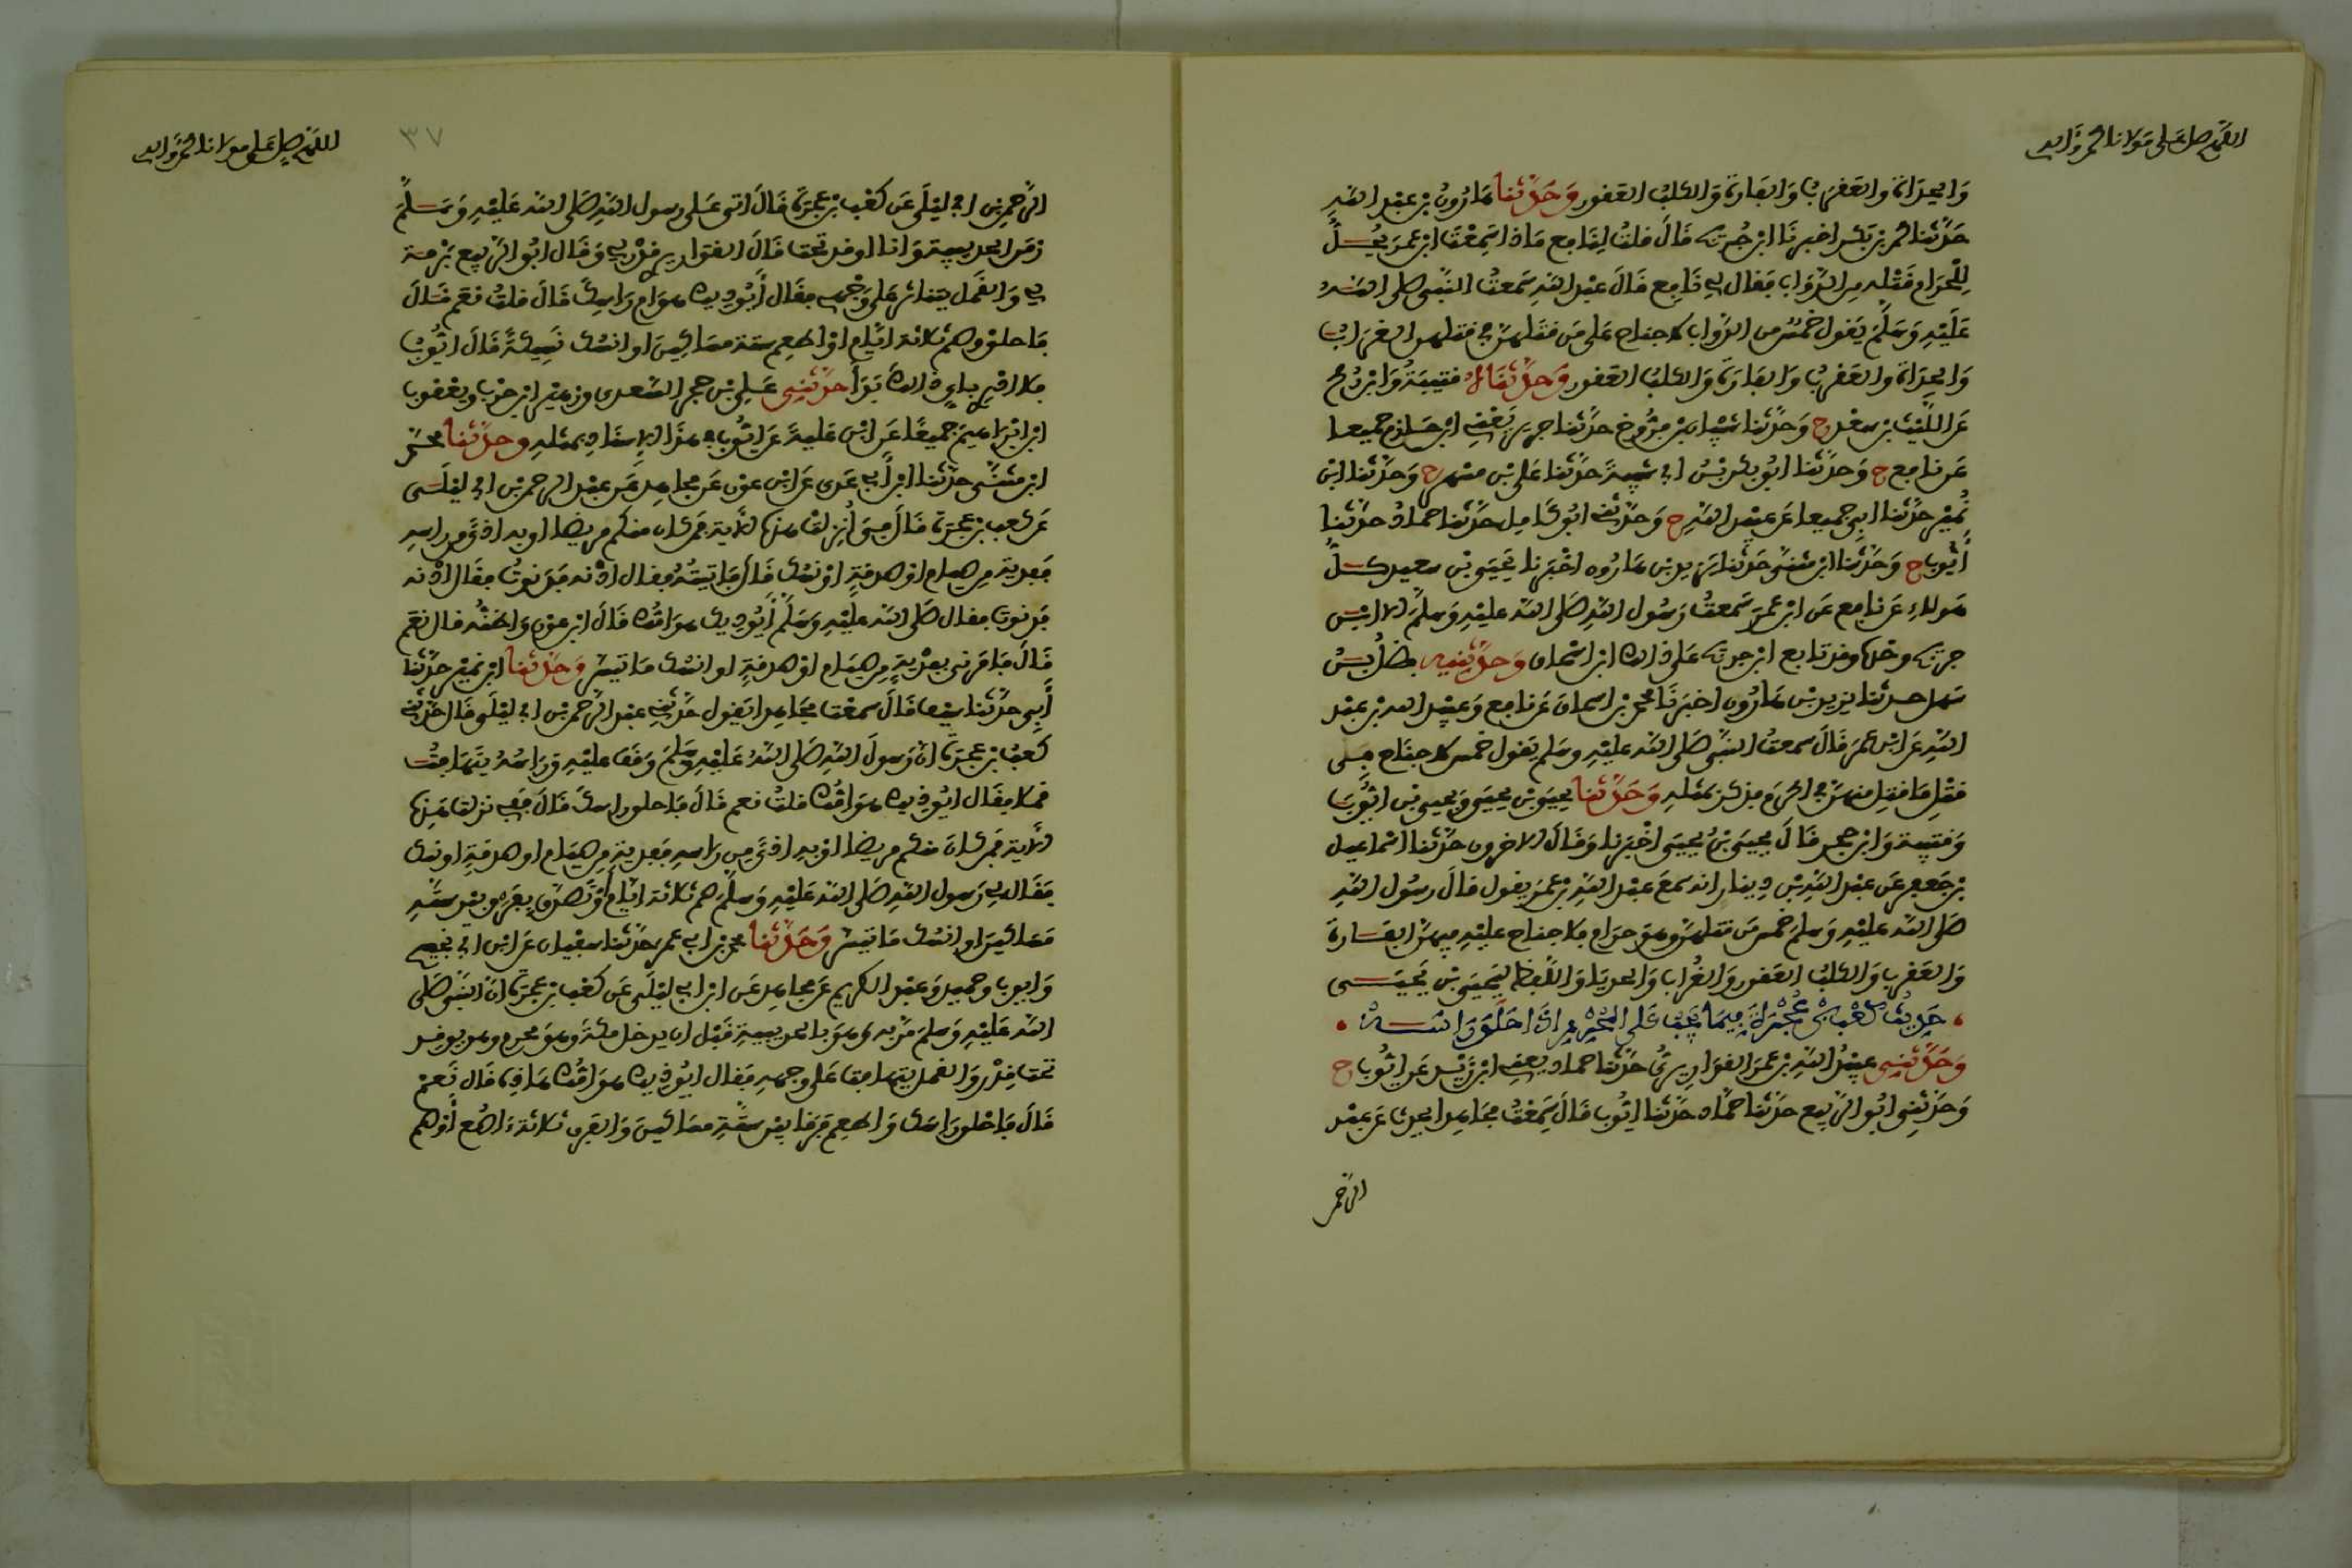 اللهم صل على مولانا محمد وآله
وَالحِدَأة والعَقرَبُ وَالفَارة وَالكلبُ العَقور وَحَدّثنا هَارُونُ بْن عبْد اللهِ
حَدّثنا محمد بْن بَكر اخبرنا ابْن جُريْج قالَ قلتُ لِنَافع مَاذا سَمِعْتَ ابْن عمرَ يُحِلُّ
لِلْحَرَام قَتْله مِن الدَّوَاب فَقال لِي نَافع قالَ عبْد الله سَمعتُ النّبي صلى اللهُ
عَلَيْهِ وَسَلّمَ يَقول خَمْسٌ من الدَّواب لا جناح عَلى مَن قتَلهنّ في قتلهن الغرَابُ
وَالحِدَاة والعَقربُ وَالفارَة وَالكلبُ العَقور وَحَدّثناه قتيبَةُ وَابْن رُمح
عَن اللّيْث بْن سعْد ح وَحَدّثنا شيْبان بْن فرُّوخ حدّثنا جرير يَعْنِي ابْن حَازم جميعا
عَن نافع ح وَحدّثنا ابُو بكر بْنُ ابي شيْبة حدّثنا عَلي بْن مسْهر ح وَحَدّثنا ابْن
نُميْر حدّثنا ابِي جميعا عَن عبيْد اللهِ ح وَحدّثنِي ابُو كامِل حدّثنا حماد حدّثنا
أيّوب ح وَحدّثنا ابن مثنّى حَدّثنا يَزيد بْن هَارُون اخْبَرنا يَحْيَى بْن سعيد كلُّ
هَؤلاءِ عَن نافع عَن ابْن عمرَ سَمعتُ رَسُول اللهِ صَلى الله عليْهِ وَسَلمَ الا ابْن
جريْج وحْده وقد تابع ابْن جريْج عَلى ذلك ابْن اسْحاق وَحَدّثنِيه فضلُ بْنُ
سَهل حدثنا يزيد بْن هَارُون اخبَرنَا محمد بْن اسحاق عَن نافع وَعبيْد الله بْن عبْد
اللهِ عَن ابْن عمَرَ قالَ سمعتُ النبي صَلى الله عليْهِ وسَلم يَقول خمس لا جنَاح في
قتْلِ مَا قتِل منهنّ في الحَرَم فذكرَ بمثله وَحَدّثنا يحيَى بْن يحيَى وَيحيى بْن ايُّوبَ
وَقتيْبة وَابْن حجر قالَ يحيَى بْنُ يحيَى اخْبَرنا وَقالَ الاخرون حَدّثنا اسْماعيل
بْن جَعفر عَن عبْد اللهِ بْن دِينار انه سَمعَ عبْد اللهِ بْن عمَرَ يقول قالَ رسُول اللهِ
صَلى الله عليْهِ وَسلمَ خمْس مَن قتلهنّ وهوَ حرَام فلا جناح عليْهِ فيهنّ الفارة
وَالعَقربُ وَالكلبُ العَقور وَالغُراب وَالحديَا وَاللّفظ ليَحيَى بْن يَحيَى
حَدِيثُ كعْب بْن عُجْرَة فِيمَا يَجِبُ عَلى المُحْرِم اذَا حَلَقَ رَاسَهُ
وَحَدّثنِي عبيْدُ اللهِ بْن عمَرَ القوَارِيرِيُّ حَدّثنا حماد يعنِي ابْن زيْد عَن ايُّوب ح
وَحَدّثنِي ابُو الرّبيع حَدّثنا حَمّاد حَدّثنا ايُّوب قالَ سَمِعْتُ مجَاهدا يحدث عَن عبْد
الرّحمن
اللهم صل على مولانا محمد وآله
٣٧
الرّحمن بْن ابي ليْلَى عَن كعْب بْن عجْرَة قالَ اتى عَلى رسول اللهِ صَلى الله عَليْهِ وَسَلمَ
زمَن الحديبية وَانا اوقد تحتَ قالَ القواريري قدْر لِي وَقال ابُو الرّبيع بُرْمة
لِي وَالقمْل يتناثر عَلى وَجْهي فقَال أيُؤذيك هوَام رَاسِك قالَ قلتُ نعَم قالَ
فاحلقْ وصم ثلاثة ايّام اوْ اطعِم ستة مسَاكينَ او انسُك نَسِيكَةً قَالَ ايُّوبُ
فلا ادْرِي بايِّ ذلكَ بَدَأ حَدّثنِي عَلي بْن حجر السّعدي وزهيْر ابْن حرْب ويعْقوب
ابْن ابْرَاهيمَ جميعًا عَن ابْن عليّة عَن ايُّوبَ في هذا الاِسنَادِ بمثلهِ وحدّثنا محمّد
ابْن مثنّى حدّثنا ابْن أبِي عَدي عَن ابْن عوْن عَن مجاهد عَن عبْد الرحمن بْن ابي ليْلَى
عَن كعب بْن عجرَة قالَ فيَّ اُنزِلتْ هذه الآية فمن كان منكم مريضا او به اذى من راسه
فَفدية من صيام اوْ صدقةٍ اوْ نسُك قَالَ فَاتيتُه فقال ادْنه فدَنوتُ فقال ادْنه
فدنوت فقال صَلى الله عليْهِ وَسَلّم أيُؤذيك هوَامُّك قالَ ابْن عوْن وَاظنُّه قال نعَم
قالَ فَامَرني بِفدْيةٍ من صيَام اوْ صدقةٍ او انسُك مَا تيسر وَحَدّثنا ابْن نميْر حدّثنا
أبِي حدّثنا سيْف قالَ سمعْتُ مجاهدا يَقول حَدّثنِي عبْد الرّحمن بْن ابي ليْلَى قالَ حَدّثنِي
كعْبُ بْن عجرَة انّ رَسولَ اللهِ صَلى اللهُ عَليْهِ وَسَلمَ وَقفَ عليْهِ وَرَاسُهُ يتَهَافتُ
قملا فقَال ايُؤذيك هوَامُّك قلتُ نعم قالَ فَاحلق راسكَ قَالَ ففِيَّ نزلتْ هَذِه
الاَية فمَن كانَ منكم مريضا اوْ به اذى مِن راسهِ فَفديةٍ من صيَام او صدقةٍ او نسك
فقَال لِي رَسول اللهِ صَلى الله عَليْهِ وَسَلّمَ صم ثلاثة ايّام أوْ تَصدّق بِفَرَق بيْن ستّةِ
مَسَاكينَ او انسُك مَا تيسّر وَحَدّثنا محمد بْن ابي عمر حَدّثنا سفيان عَن ابْن ابي نجيح
وَايوب وحميد وَعبْد الكريم عَن مجاهد عَن ابْن ابي ليْلَى عَن كعْب بْن عجرَة انّ النّبي صَلى
الله عَليْهِ وَسَلمَ مَرّ به وهوَ بالحديبيةِ قَبْل ان يدخل مكّةَ وهوَ محرم وهو يوقد
تحتَ قِدْر وَالقمل يتهافت عَلى وجههِ فَقال ايُؤذيك هوَامُّك هَذِه قَال نَعَمْ
قالَ فَاحْلق رَاسَك وَاطعِم فَرَقا بيْن ستّةِ مسَاكينَ وَالفرق ثلاثة ءاصُع أوْ صم